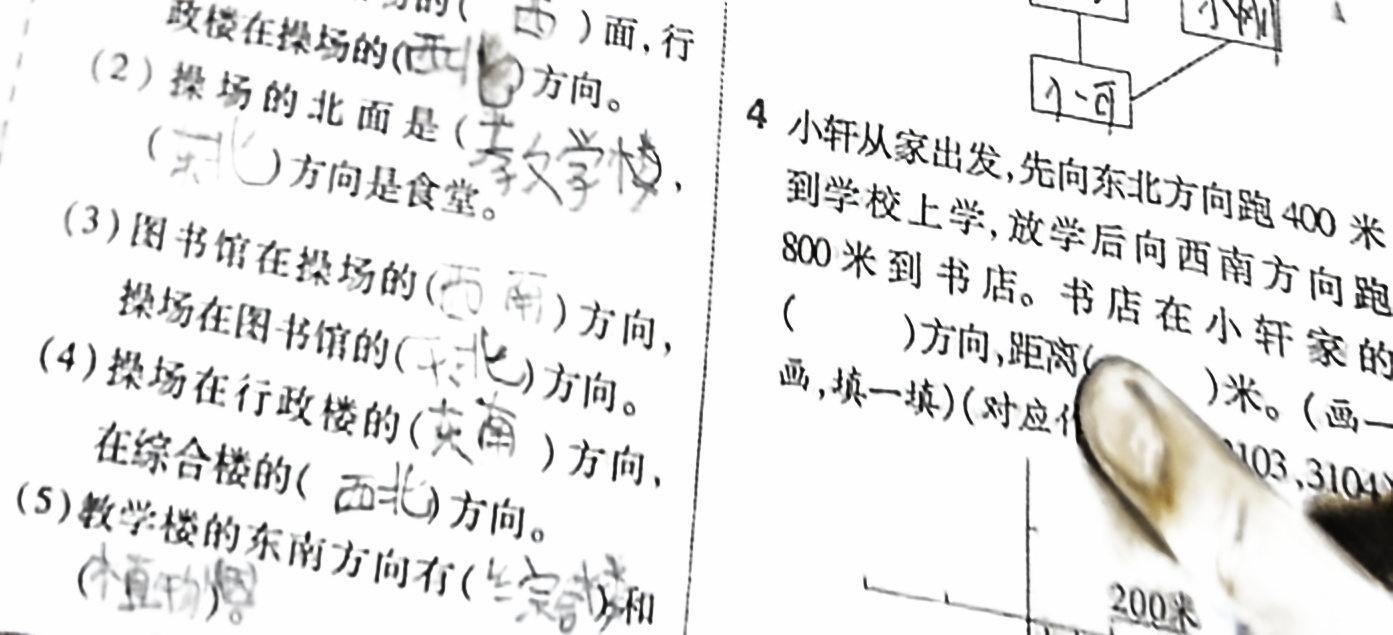 的( 西 )面,行
政楼在操场的(西北)方向。
(2)操场的北面是(教学楼),
(东北)方向是食堂。
(3)图书馆在操场的(西南)方向,
操场在图书馆的(东北)方向。
(4)操场在行政楼的(东南)方向,
在综合楼的(西北)方向。
(5)教学楼的东南方向有(综合楼)和
(植物园)
小刚
小可
4 小轩从家出发,先向东北方向跑400米
到学校上学,放学后向西南方向跑
800米到书店。书店在小轩家的
( )方向,距离( )米。(画一
画,填一填)(对应
103,3104)
200米